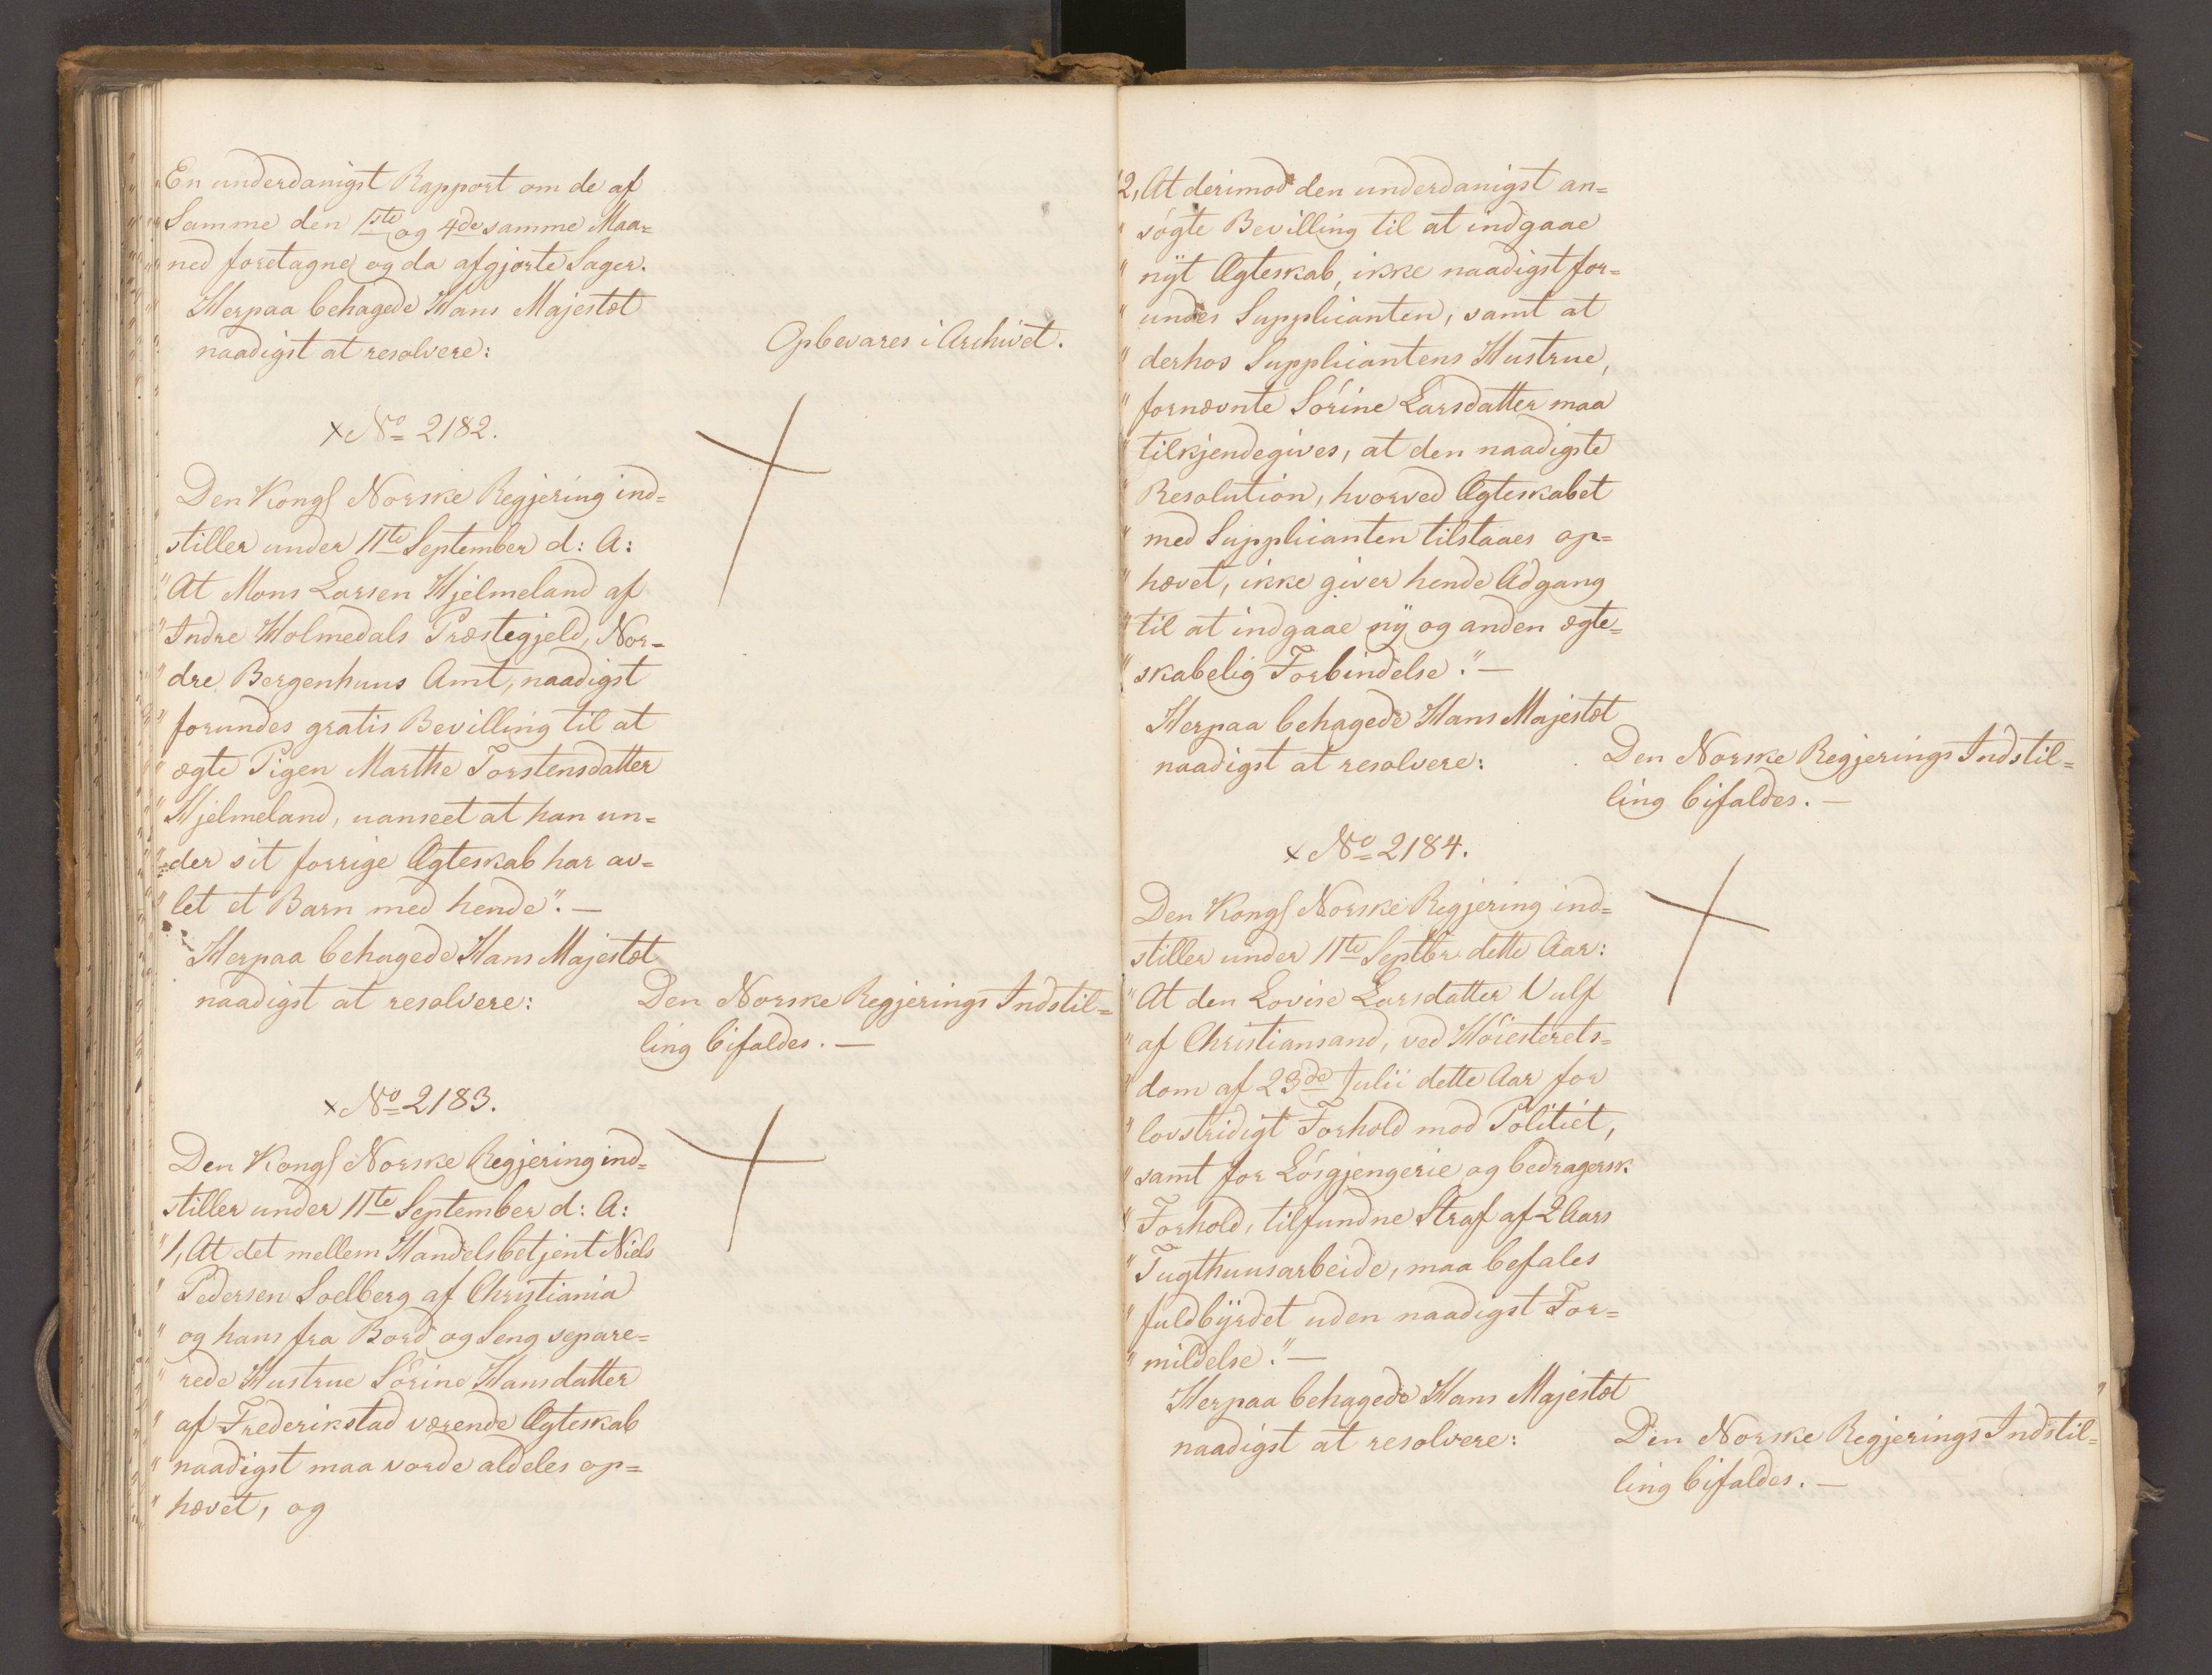 En underdanigst Rapport om de af
Samme den 1ste og 4de samme Maa=
ned foretagne og da afgjorte Sager.
Herpaa behagede Hans Majestæt
naadigst at resolvere:
Opbevares i Archivet.
x No= 2182.
Den Kongl Norske Regjering ind=
stiller under 11te September d: A:
"At Mons Larsen Hjelmeland af
"Indre Holmedals Præstegjeld, Nor=
"dre Bergenhuus Amt, naadigst
"forundes gratis Bevilling til at
"ægte Pigen Marthe Torstensdatter
"Hjelmeland, uanseet at han un=
"der sit forrige Ægteskab har av=
"let et Barn med hende". —
Herpaa behagede Hans Majestæt
naadigst at resolvere:
Den Norske Regjerings Indstil=
ling bifaldes. —
x No= 2183.
Den Kongl Norske Regjering ind=
stiller under 11te September d: A:
"1, At det mellem Handelsbetjent Niels
"Pedersen Soelberg af Christiania
"og hans fra Bord og Seng separe=
"rede Hustrue Sörine Hansdatter
"af Frederikstad værende Ægteskab
"naadigst maa vorde aldeles op=
"hævet, og
"2, At derimod den underdanigst an=
"søgte Bevilling til at indgaae
"nÿt Ægteskab, ikke naadigst for=
"undes Supplicanten, samt at
"derhos Supplicantens Hustrue,
"fornævnte Sörine Larsdatter maa
"tilkjendegives, at den naadigste
"Resolution, hvorved Ægteskabet
"med Supplicanten tilstaaes op=
"hævet, ikke giver hende Adgang
"til at indgaae nÿ og anden ægte=
"skabelig Forbindelse." —
Herpaa behagede Hans Majestæt
naadigst at resolvere:
Den Norske Regjerings Indstil=
ling bifaldes. —
x No= 2184.
Den Kongl Norske Regjering ind=
stiller under 11te Septbr dette Aar:
"At den Lovise Larsdatter Vulf
"af Christiansand, ved Höiesterets=
"dom af 23de Julii dette Aar for
"lovstridigt Forhold mod Politiet,
"samt for Lösgjengerie og bedragersk
"Forhold, tilfundne Straf af 2 Aars
"Tugthuusarbeide, maa befales
"fuldbÿrdet uden naadigst For=
"mildelse." —
Herpaa behagede Hans Majestæt
naadigst at resolvere:
Den Norske Regjerings Indstil=
ling bifaldes. —